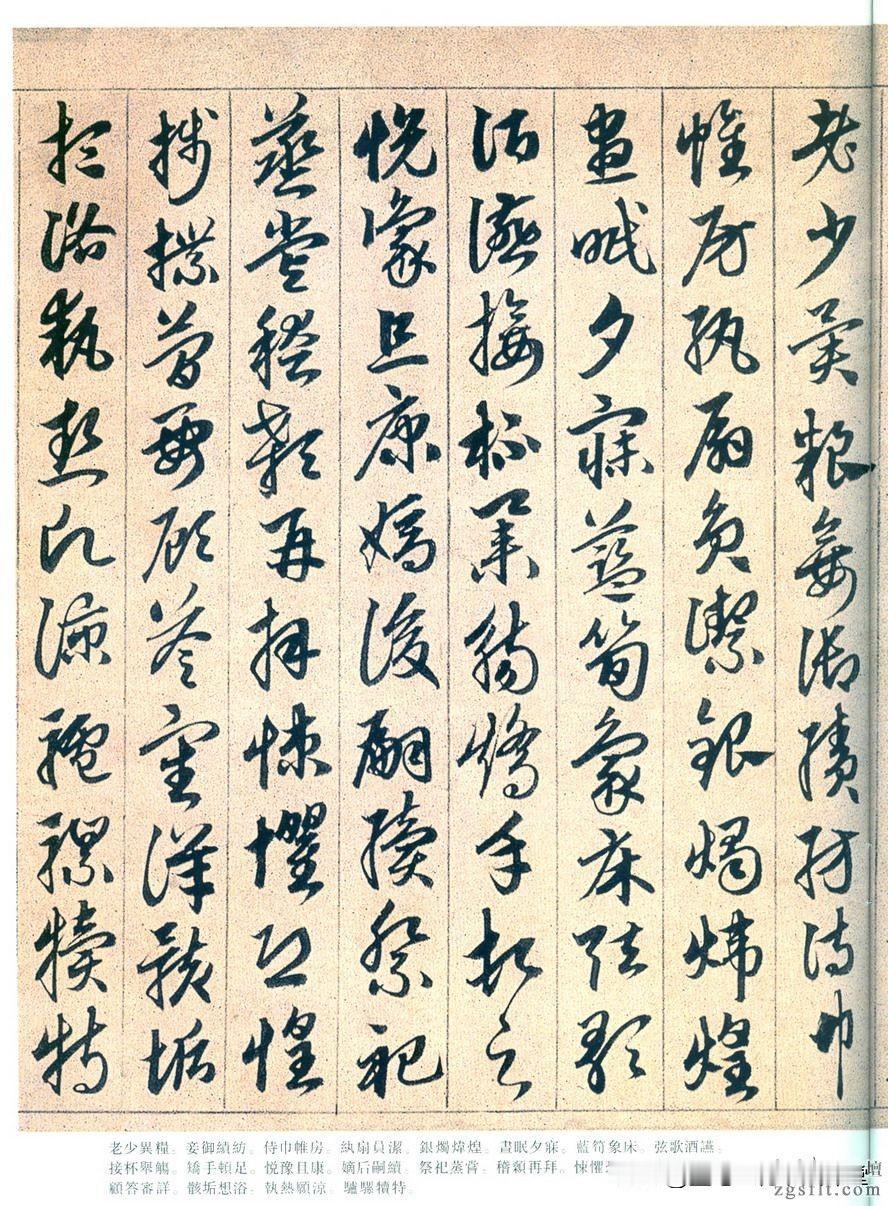 老少異粮妾御績紡侍巾
帷房紈扇員潔銀燭煒煌
晝眠夕寐藍筍象床弦歌
酒讌接杯舉觴矯手頓足
悦豫且康嫡後嗣續祭祀
蒸嘗稽顙再拜悚懼恐惶
牋牒簡要顧答審詳骸垢
想浴執熱願涼驢騾犢特
老少異糧。妾御績紡。侍巾帷房。紈扇員潔。銀燭煒煌。晝眠夕寐。藍筍象床。弦歌酒讌。
接杯舉觴。矯手頓足。悦豫且康。嫡后嗣續。祭祀蒸嘗。稽顙再拜。悚懼
顧答審詳。骸垢想浴。執熱願涼。驢騾犢特。
壇
zgsflt.com